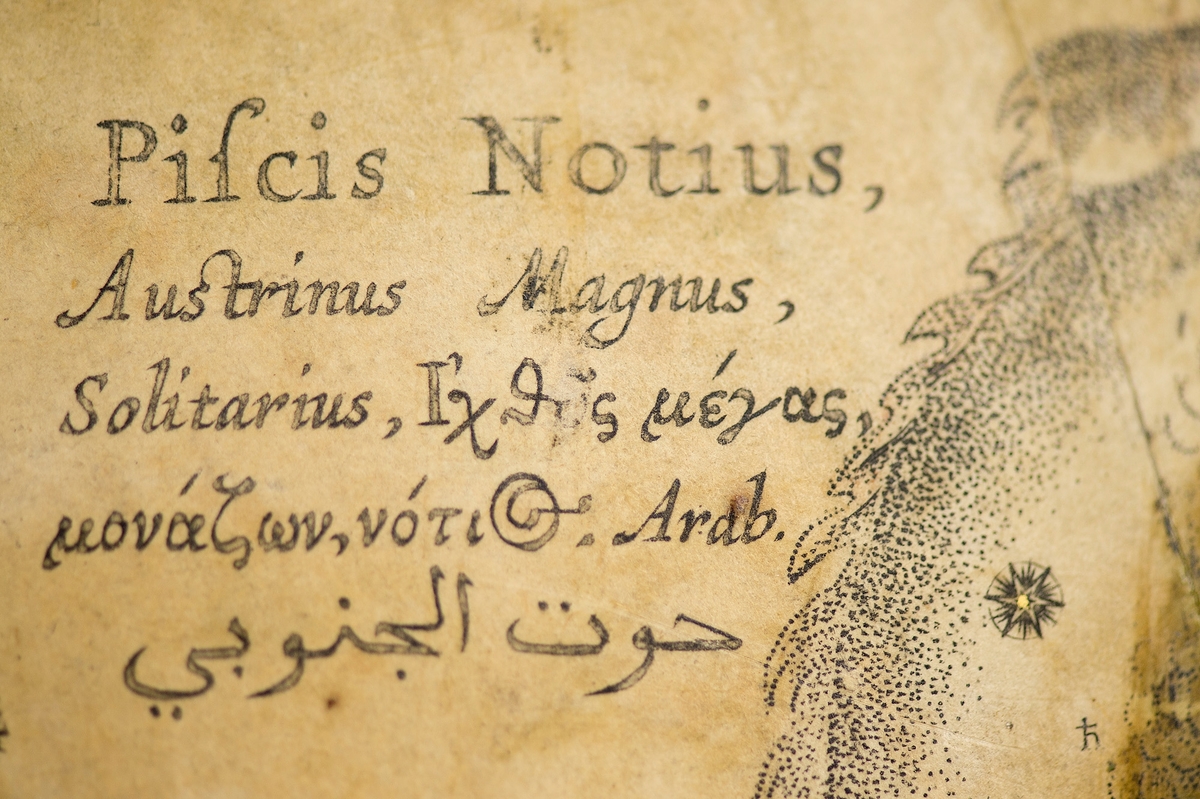 Piſcis Notius,
Austrinus Magnus,
Solitarius, Ἰχθῦς μέγας,
μονάζων, νότιος. Arab.
حوت الجنوبي
♄